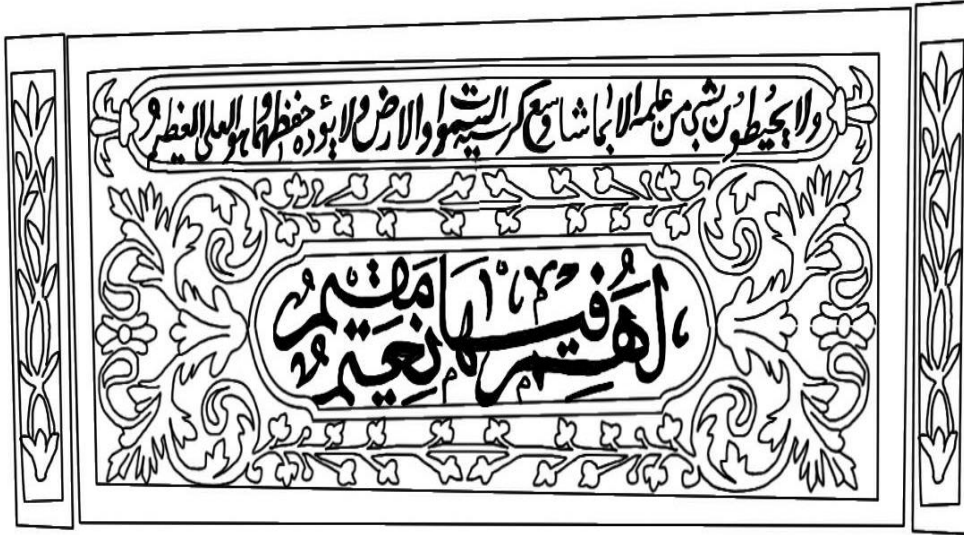 ولا يحيطون بشئ من علمه الا بما شا وسع كرسيه السموات والارض ولا يؤده حفظهما وهو العلي العظيم
لهم فيها نعيم مقيم